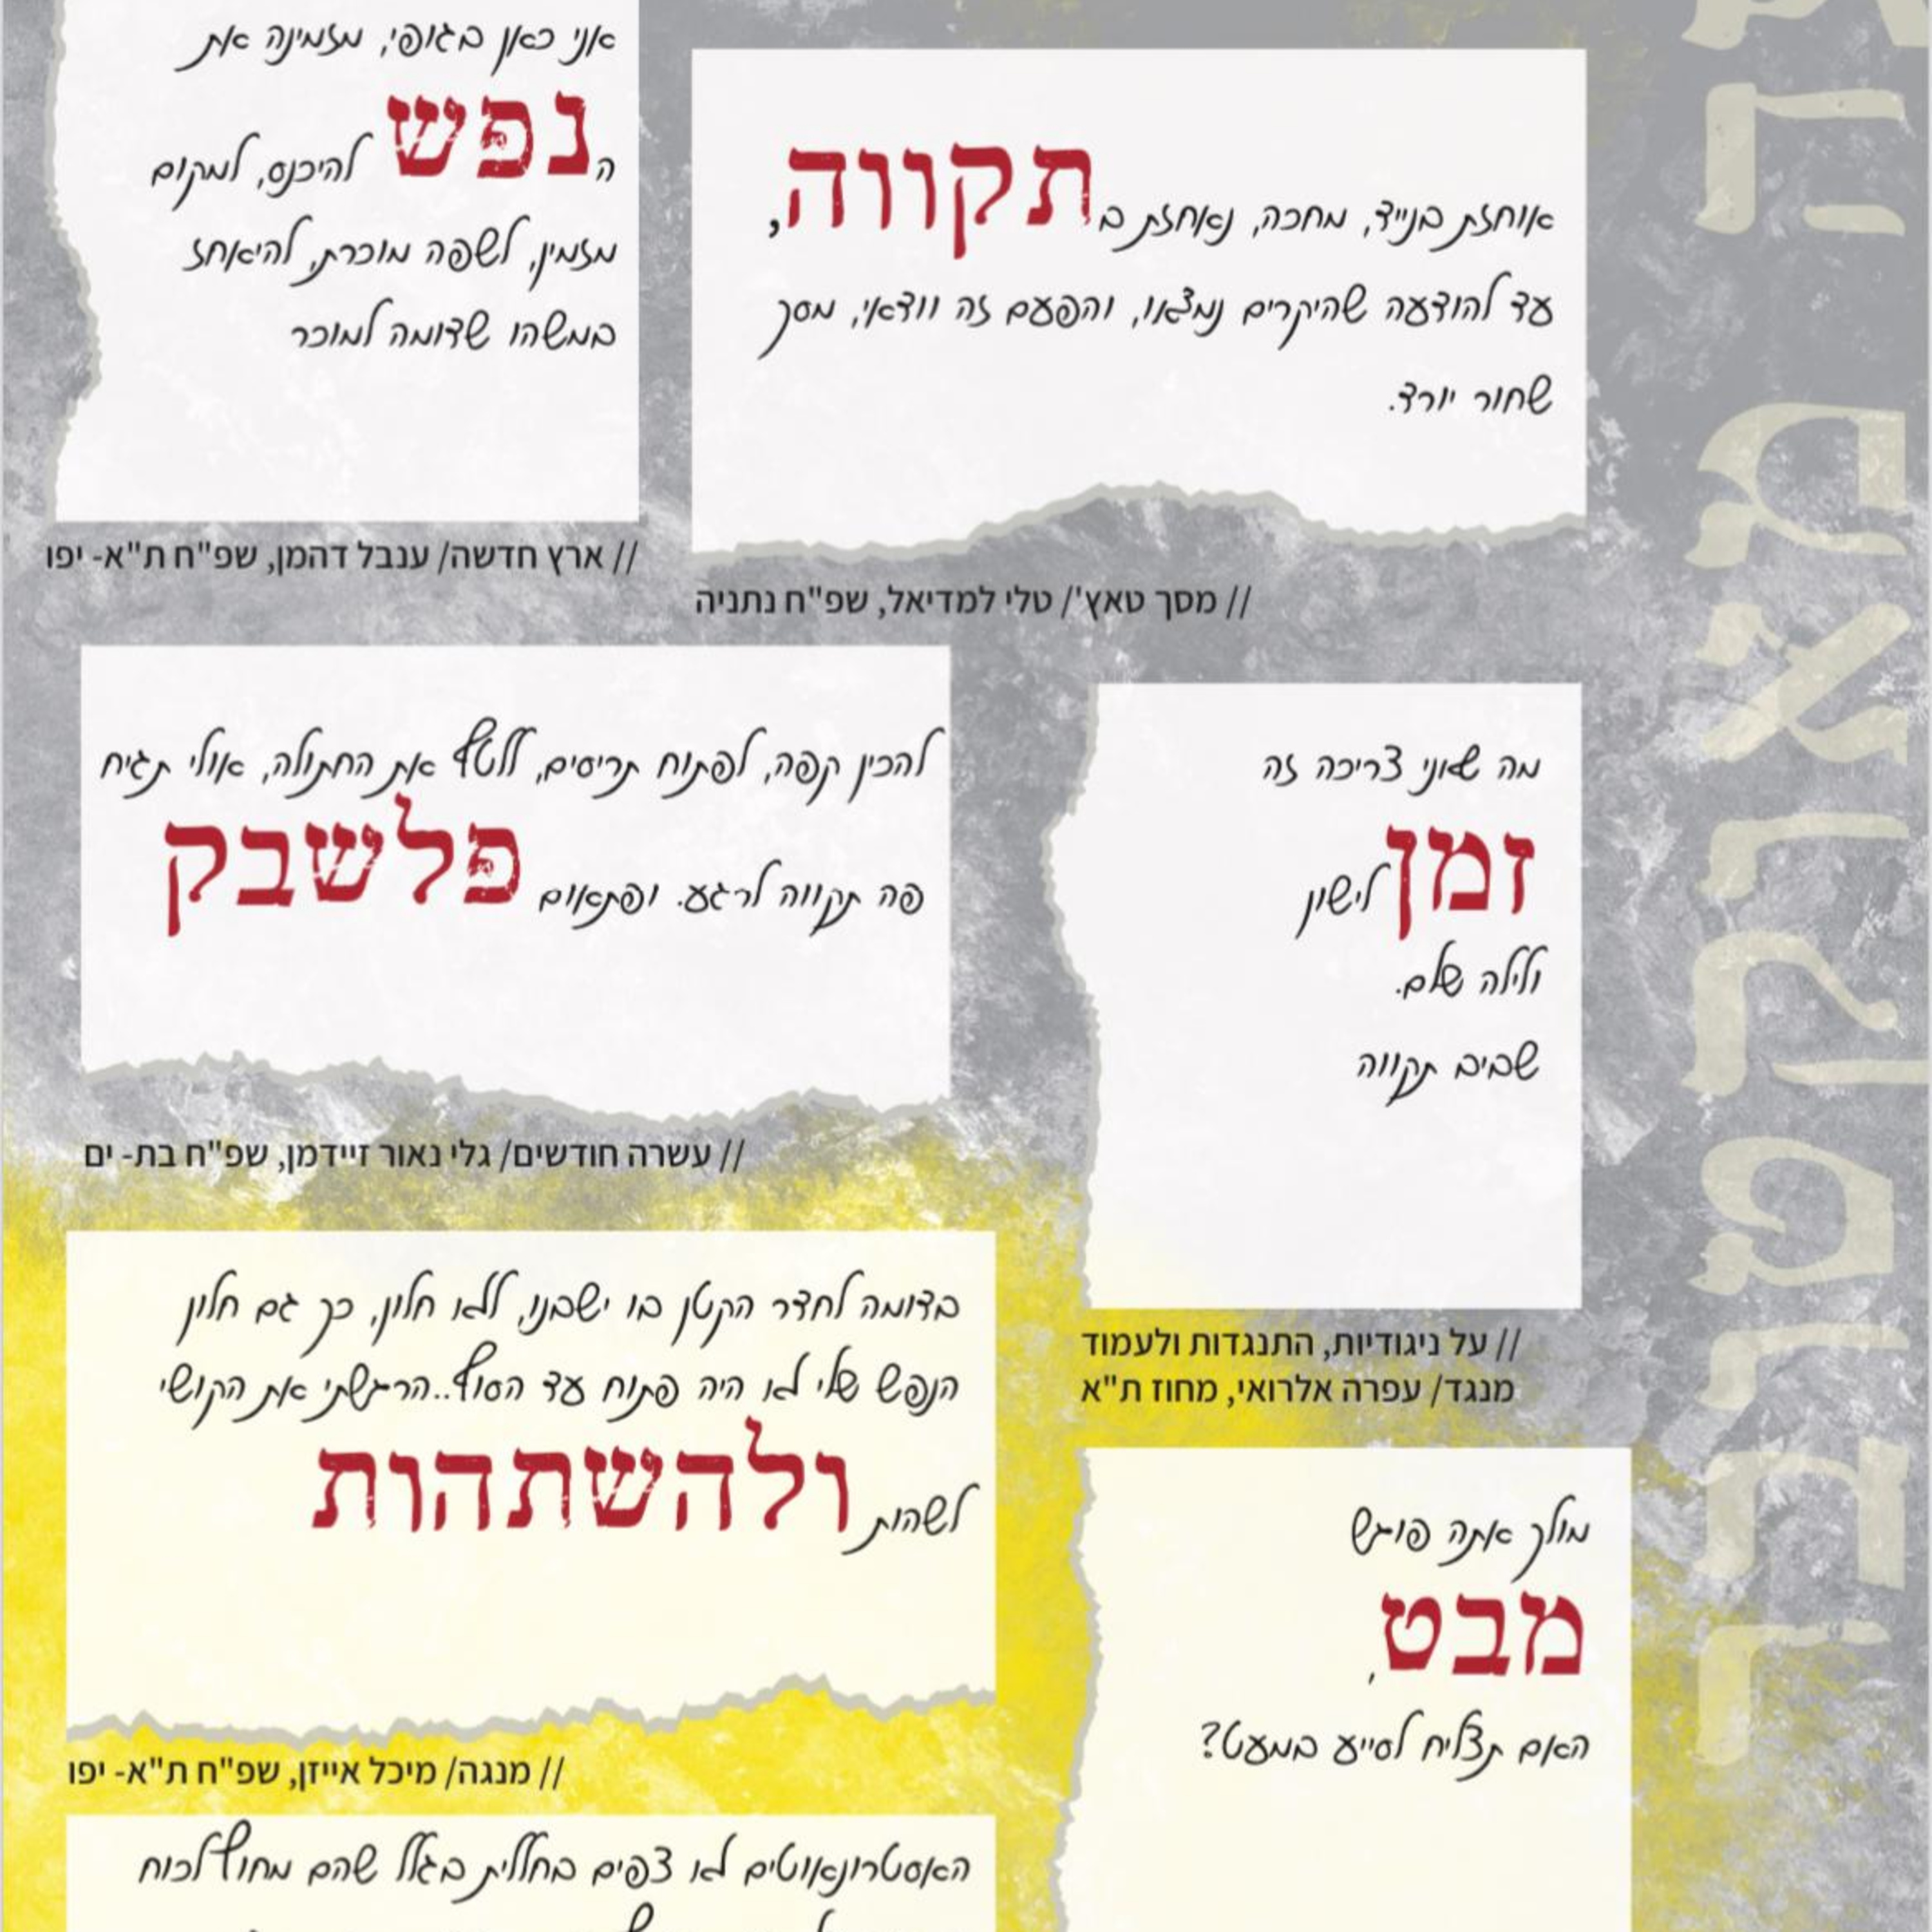 אני כאן בגופי, מזמינה את
הנפש להיכנס, למקום
מזמין, לשפה מוכרת, להיאחז
במשהו שדומה למוכר
// ארץ חדשה/ ענבל דהמן, שפ"ח ת"א- יפו
אוחזת בנייד, מחכה, נאחזת בתקווה,
עד להודעה שהיקרים נמצאו, והפעם זה וודאי, מסך
שחור יורד.
// מסך טאץ'/ טלי למדיאל, שפ"ח נתניה
להכין קפה, לפתוח תריסים, ללטף את החתולה, אולי תגיח
פה תקווה לרגע. ופתאום פלשבק
// עשרה חודשים/ גלי נאור זיידמן, שפ"ח בת- ים
מה שאני צריכה זה
זמן לישון
ולילה שלם.
שביב תקווה
// על ניגודיות, התנגדות ולעמוד
מנגד/ עפרה אלרואי, מחוז ת"א
בדומה לחדר הקטן בו ישבנו, ללא חלון, כך גם חלון
הנפש שלי לא היה פתוח עד הסוף..הרגשתי את הקושי
לשהות ולהשתהות
// מנגה/ מיכל אייזן, שפ"ח ת"א- יפו
מולך אתה פוגש
מבט,
האם תצליח לסייע במעט?
האסטרונאוטים לא צפים בחללית בגלל שהם מחוץ לכוח